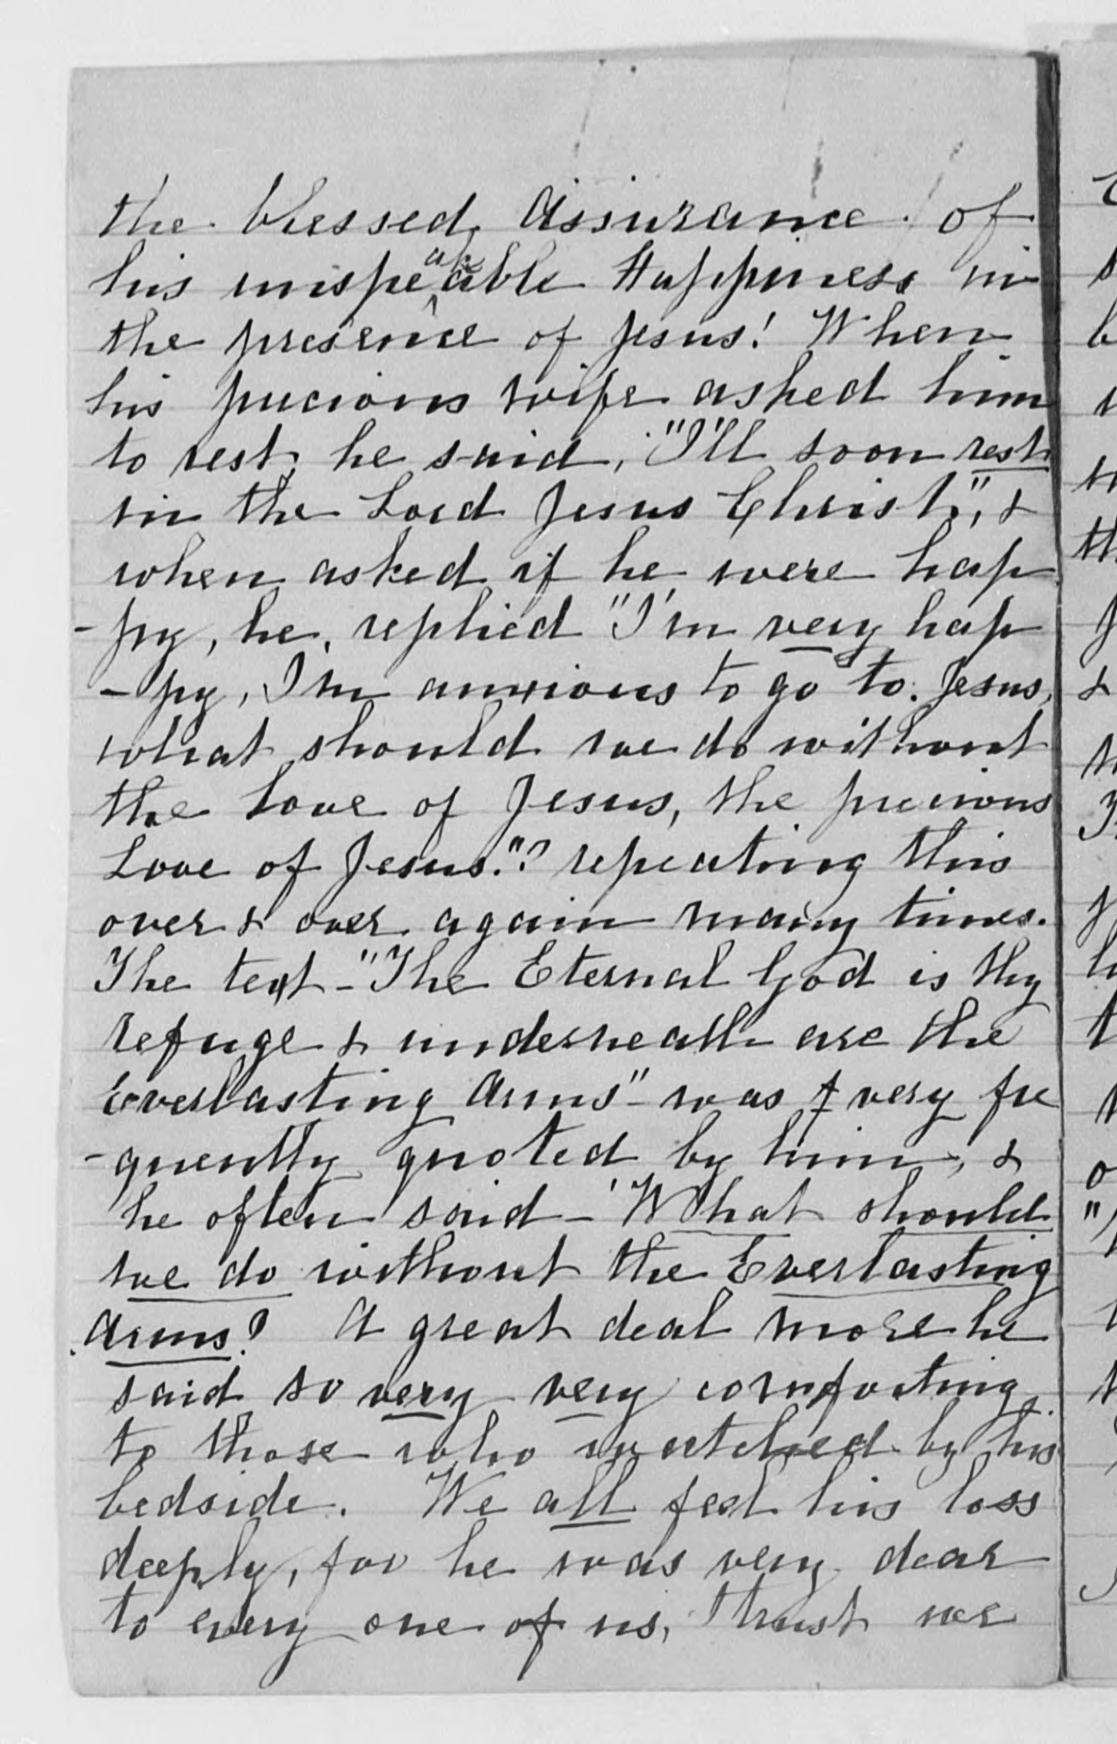 the blessed assurance of
his unspeakable Happiness in
the presence of Jesus! When
his precious wife asked him
to rest, he said, "I'll soon rest
in the Lord Jesus Christ", &
when asked if he were hap
-py, he, replied "I'm very hap
-py, I'm anxious to go to Jesus,
what should we do without
the love of Jesus, the precious
Love of Jesus."? repeating this
over & over again many times.
The text - "The Eternal God is thy
refuge & underneath are the
Everlasting Arms" - was very fre
-quently quoted by him, &
he often said - 'What should
we do without the Everlasting
Arms? A great deal more he
said so very very comforting
to those who watched by his
bedside. We all feel his loss
deeply, for he was very dear
to every one of us, I trust we